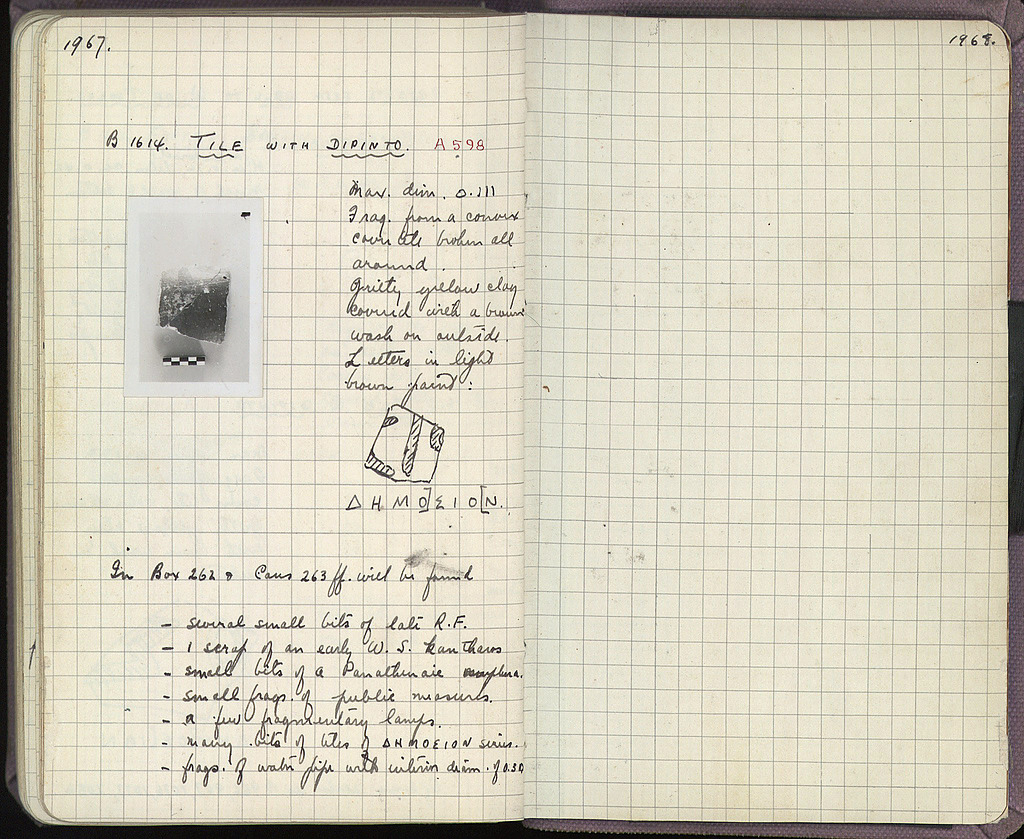 1967.
1968.
B 1614. TILE WITH DIPINTO. A 598
Max. dim. 0.111
Frag. from a convex
cover tile broken all
around.
Gritty yellow clay
covered with a brown
wash on outside.
Letters in light
brown paint:
ΔΗΜΟ]ΣΙΟ[Ν.
In Box 262 & Cans 263 ff. will be found
- several small bits of late R.F.
- 1 scrap of an early W. S. kantharos
- small bits of a Panathenaic amphora.
- small frags. of public measures.
- a few fragmentary lamps.
- many bits of tiles of ΔΗΜΟΣΙΟΝ series.
- frags. of water pipe with interior diam. of